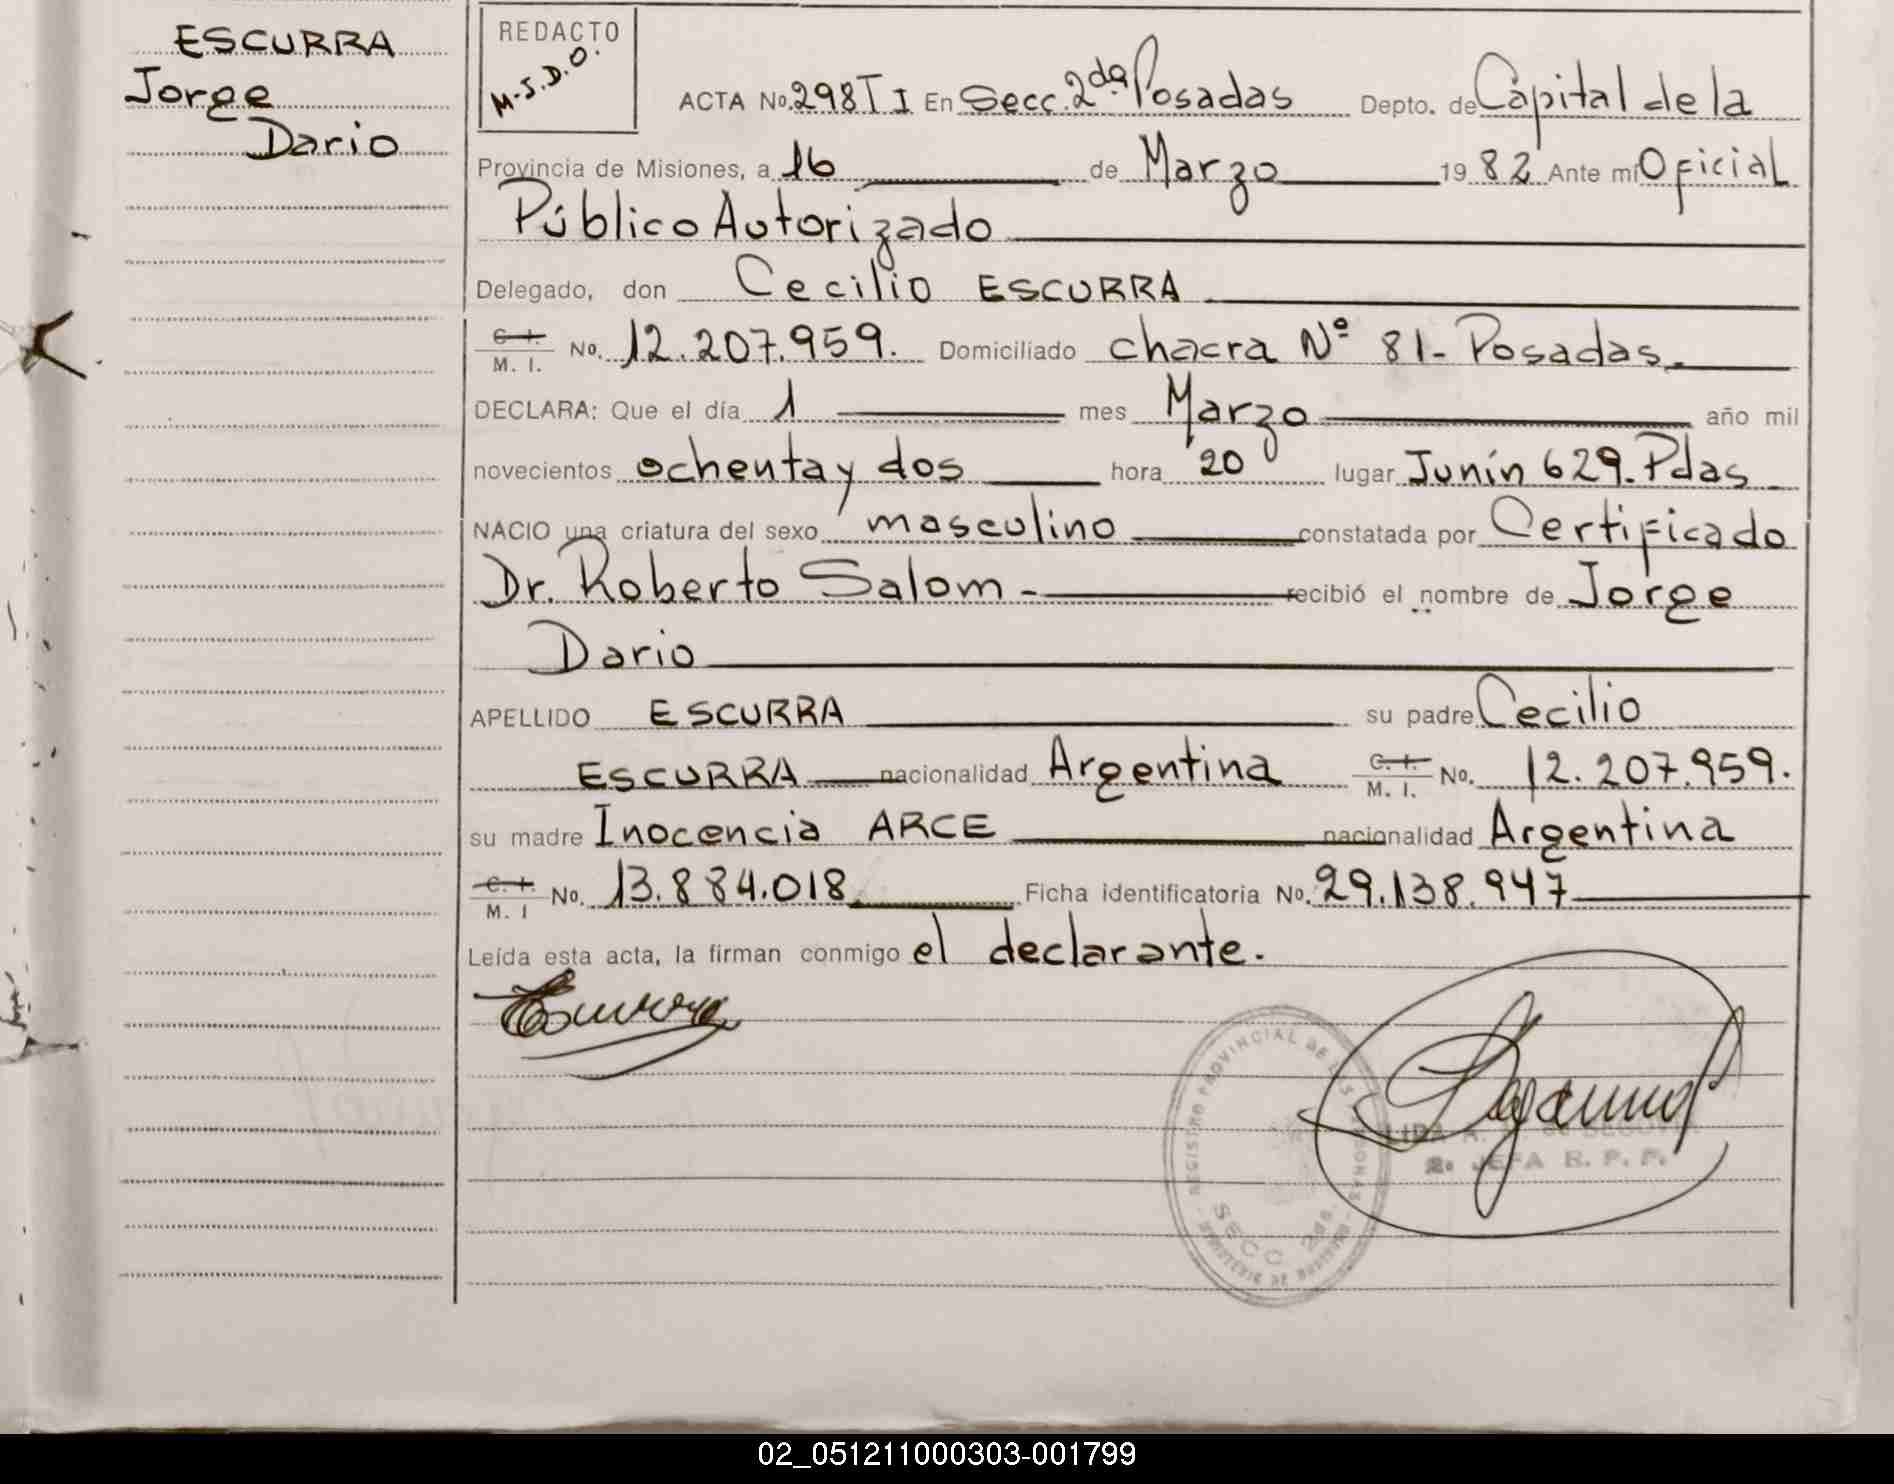 ESCURRA
Jorge
Dario
REDACTO
M.S.D.O.
ACTA No. 298 T I En Secc. 2da. Posadas Depto. de Capital de la
Provincia de Misiones, a 16 de Marzo 1982 Ante mi Oficial
Público Autorizado
Delegado, don Cecilio ESCURRA
C. I. M. I. No. 12.207.959. Domiciliado chacra Nº 81- Posadas.
DECLARA: Que el día 1 mes Marzo año mil
novecientos ochenta y dos hora 20 lugar Junín 629. Pdas
NACIO una criatura del sexo masculino constatada por Certificado
Dr. Roberto Salom - recibió el nombre de Jorge
Dario
APELLIDO ESCURRA su padre Cecilio
ESCURRA nacionalidad Argentina C. I. M. I. No. 12.207.959.
su madre Inocencia ARCE nacionalidad Argentina
C. I. M. I No. 13.884.018 Ficha identificatoria No. 29.138.947
Leída esta acta, la firman conmigo el declarante.
Escurra
REGISTRO PROVINCIAL DE LAS PERSONAS
SECC 2da.
SEGOVIA
2a. JEFA R. P. P.
02_051211000303-001799